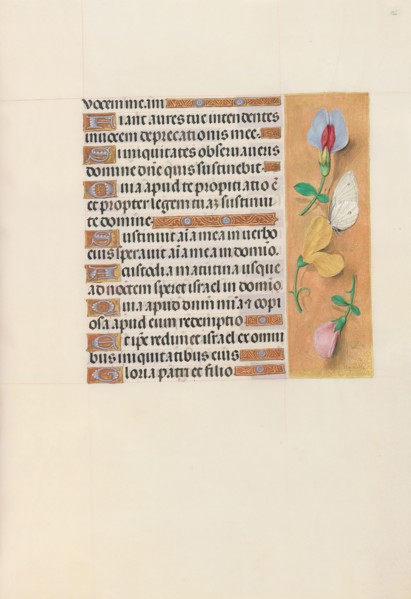 vocem meam
Fiant aures tue intendentes
in vocem deprecationis mee.
Si iniquitates observaveris
domine: dñe quis sustinebit.
Quia apud te propitiatio ẽ
et propter legem tuã sustinui
te domine
Sustinuit aĩa mea in verbo
eius speravit aĩa mea in domiõ.
A custodia matutina usque
ad noctem speret israel in domiõ.
Quia apud dñm mĩa & copi
osa apud eum redemptio
Et ip̃e redimet israel ex omni
bus iniquitatibus eius
Gloria patri et filio